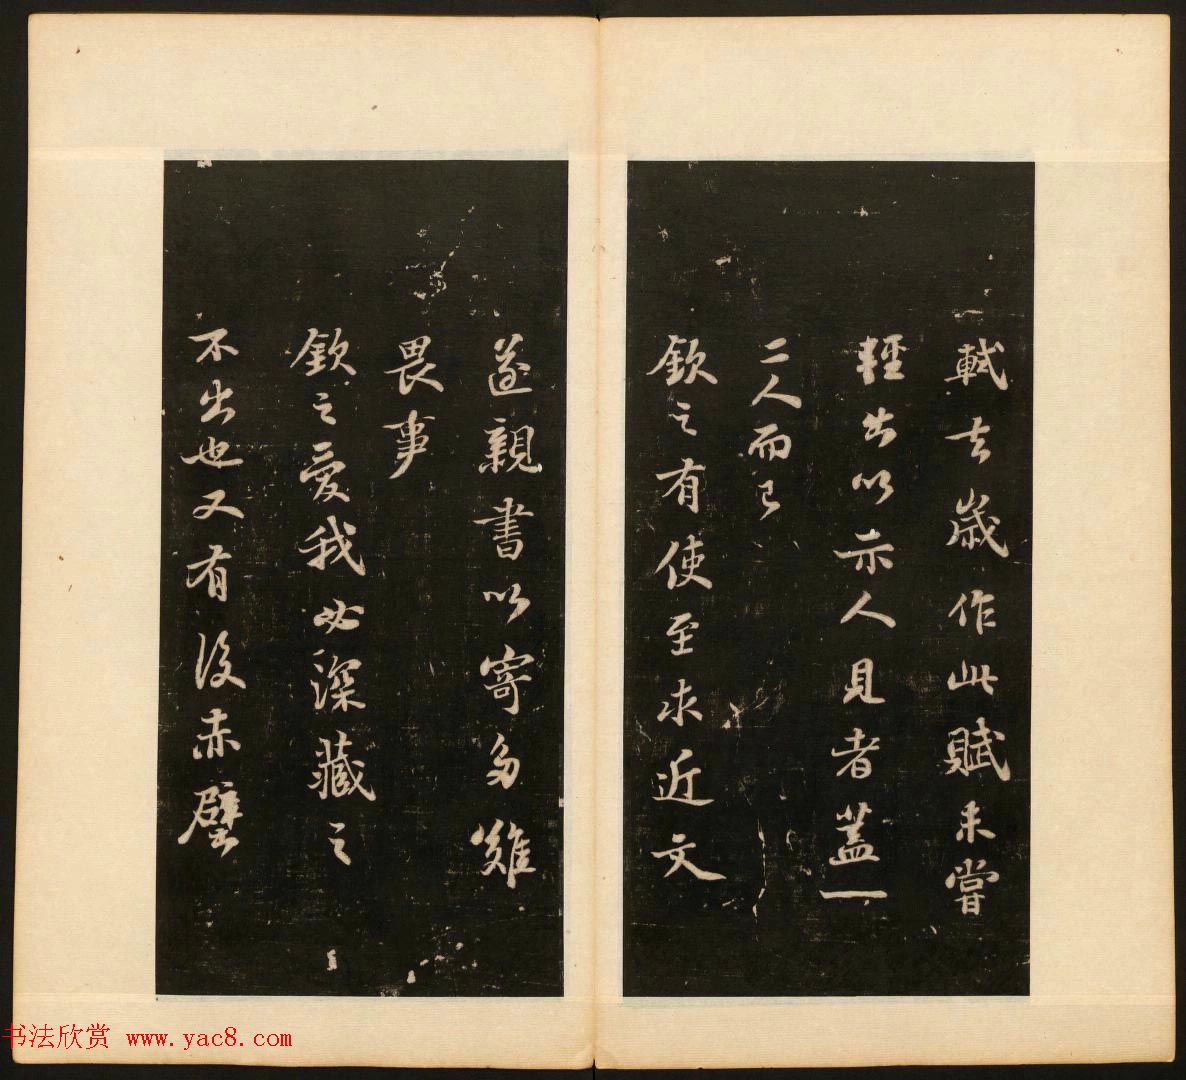 軾去歲作此賦未嘗
輕出以示人見者蓋一
二人而已
欽之有使至求近文
遂親書以寄多難
畏事
欽之愛我必深藏之
不出也又有後赤壁
书法欣赏 www.yac8.com